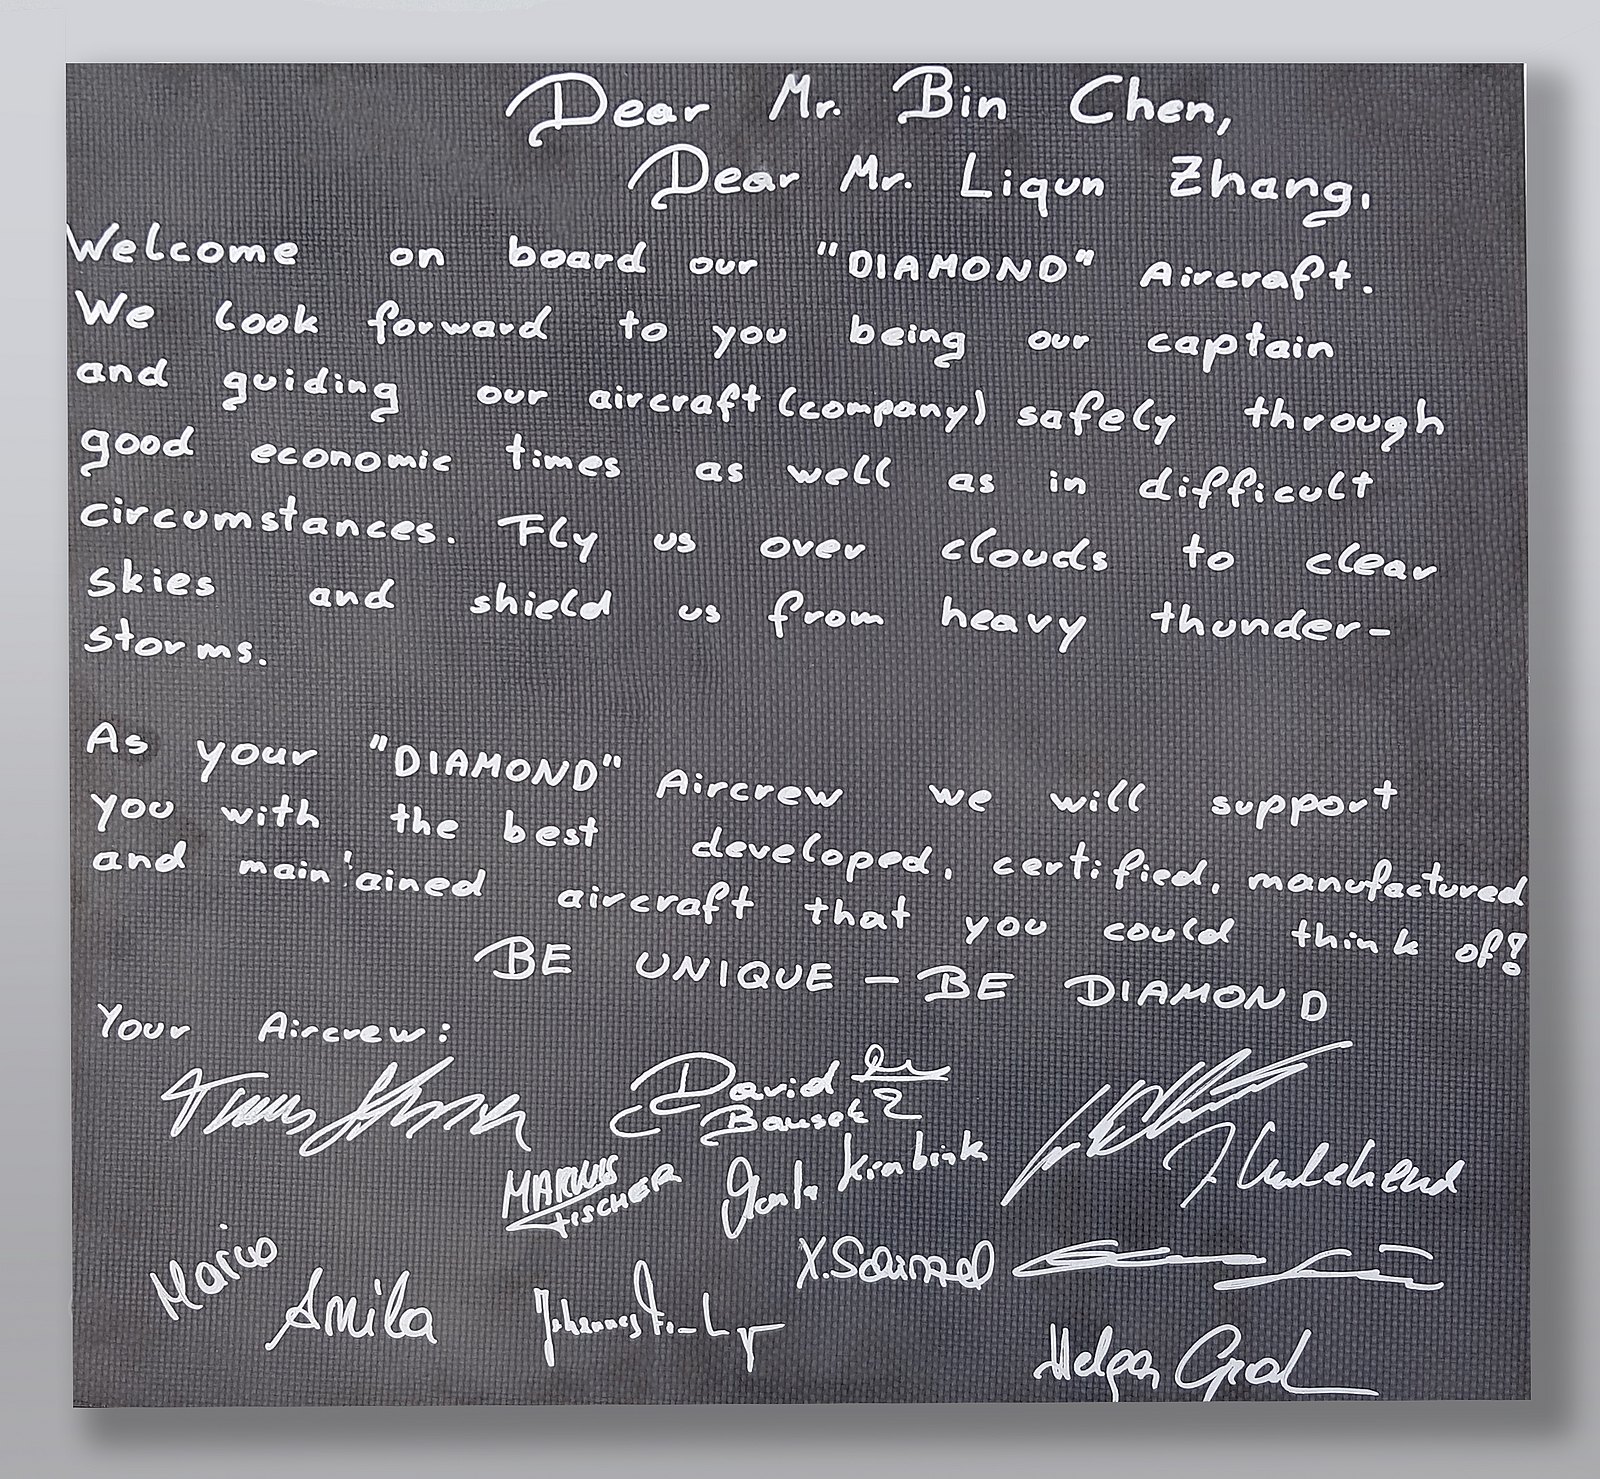 Dear Mr. Bin Chen,
Dear Mr. Liqun Zhang,
Welcome on board our "DIAMOND" Aircraft.
We look forward to you being our captain
and guiding our aircraft (company) safely through
good economic times as well as in difficult
circumstances. Fly us over clouds to clear
skies and shield us from heavy thunder-
storms.
As your "DIAMOND" Aircrew we will support
you with the best developed, certified, manufactured
and main'ained aircraft that you could think of!
BE UNIQUE - BE DIAMOND
Your Aircrew:
David
MARKUS
FISCHER
Mario
Amila
Johannes
Helga